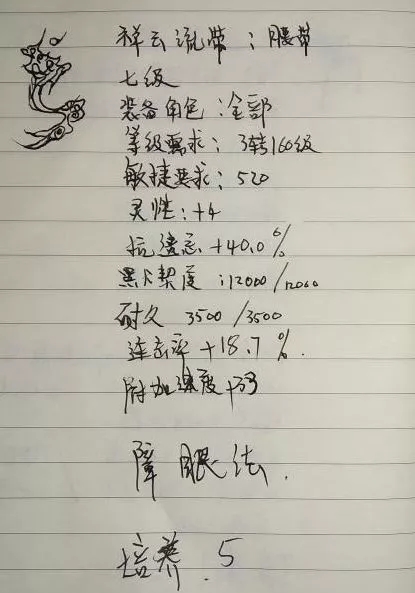 祥云流带：腰带
七级
装备角色：全部
等级需求：3转160级
敏捷要求：520
灵性：+4
抗遗忘 +40.0%
默契度：12000/12000
耐久 3500/3500
连击率 +18.7%.
附加速度 +
障眼法.
培养.5